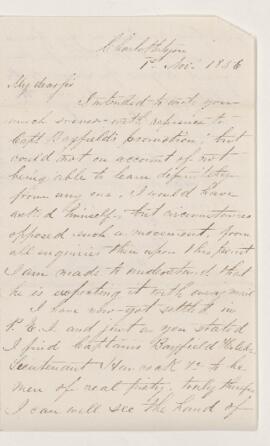 Charlottetown
1st Nov. 1856
My dear Sir
I intended to write you
much sooner with reference to
Capt Bayfield's promotion; but
could not on account of not
being able to learn definitely
from any one. I would have
asked himself, but circumstances
opposed such a movement, from
all enquiries then upon this point
I am made to understand that
he is expecting it with every mail
I have now got settled in
P.E.I. and just as you stated
I find Captains Bayfield
Lieutenant Hancock to be
men of real piety, truly therefore
I can well see the hand of